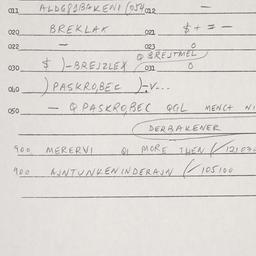 011 ALDGPSBGKENI (054 012 —
020 BREKLAK 021 $ + = —
022 — 023 0
Q BREJTMEL
030 $ )-BREJZLEX 031 0
040 ) PASKROBEC )-V...
050 — Q PASKROBEC QGL MENCH NI
DERBAKENER
900 MERERVI QI MORE THEN
900 AJNTUNKENINDERAJN (/ 105100